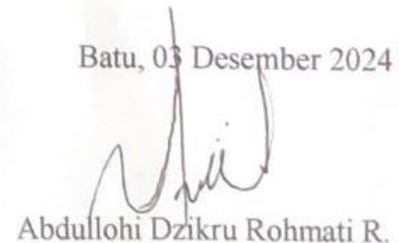 Batu, 03 Desember 2024
Abdullohi Dzikru Rohmati R.